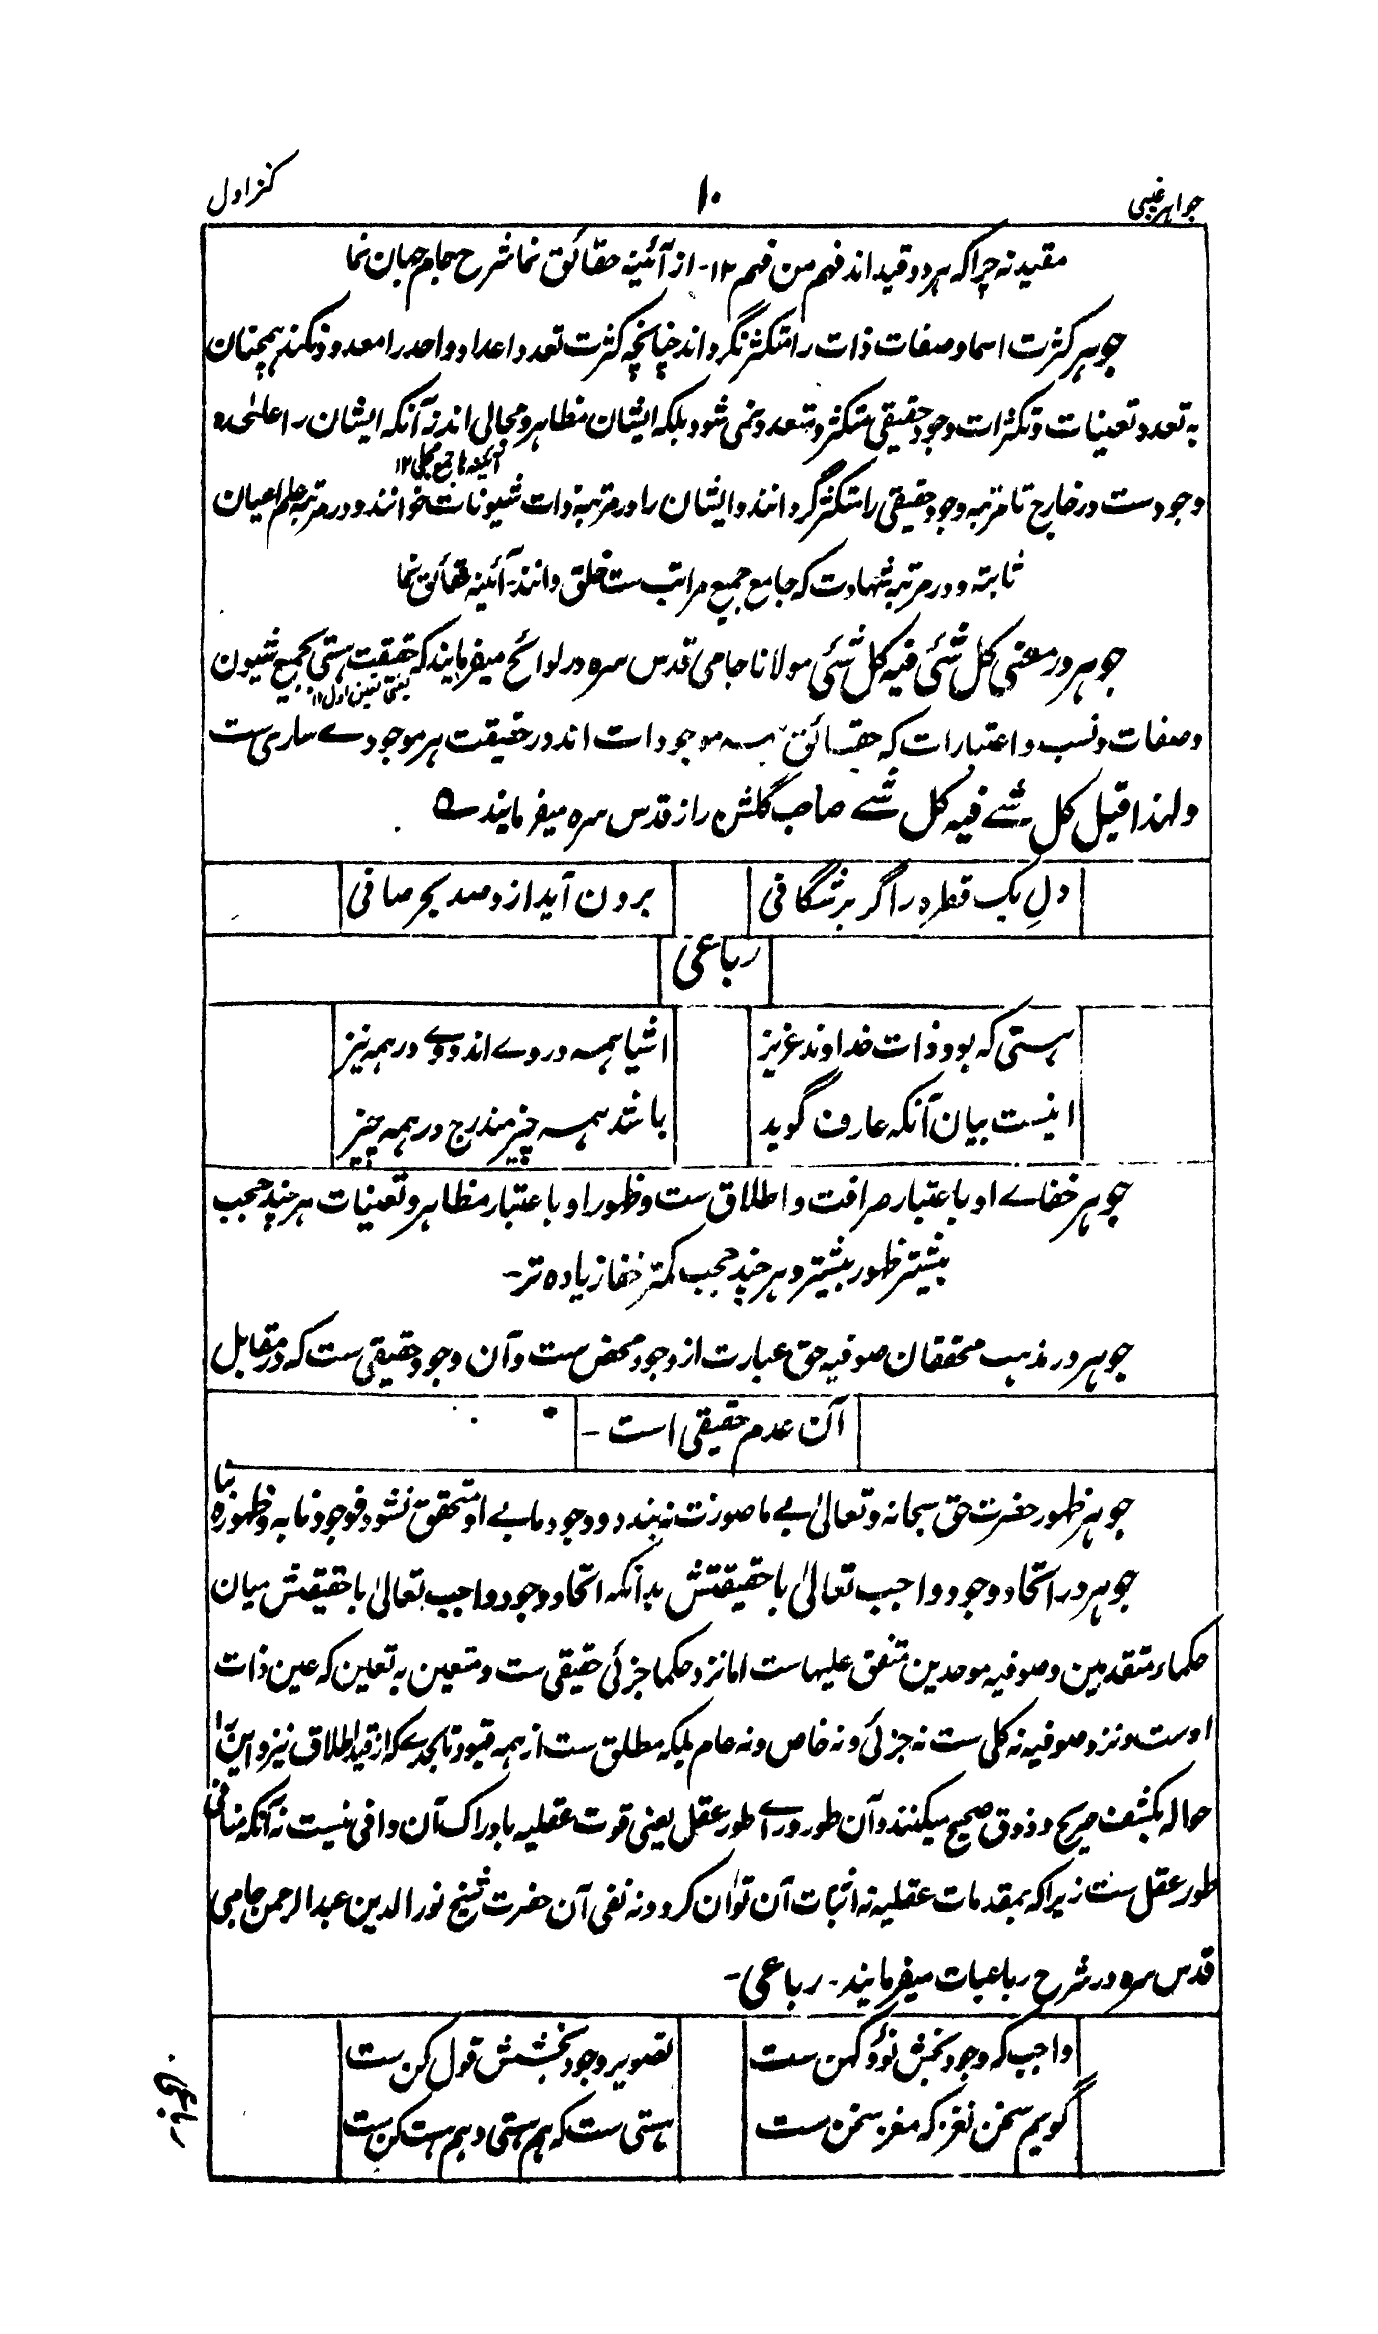 جواہر غیبی
۱۰
کنز اول
مقید نہ چرا کہ ہر دو قید اند فہم من فہم ۱۲- از آئینہ حقائق نما شرح جام جہان نما
جوہر کثرت اسما و صفات ذات را متکثر نگرداند چنانچہ کثرت تعدد اعداد واحد را معدود نکند ہمچنان
بہ تعدد و تعینات و تکثرات وجود حقیقی متکثر و متعدد نمی شود بلکہ ایشان مظاہر و مجالی اند نہ آنکہ ایشان را علٰحدہ
جمع مجلی ۱۲
وجودست در خارج تا مرتبہ وجود حقیقی را متکثر گردانند و ایشان را در مرتبہ ذات شیونات خوانند و در مرتبہ علم اعیان
ثابتہ و در مرتبہ شہادت کہ جامع جمیع مراتب ست خلق دانند- آئینہ حقائق نما
جوہر در معنی کل شئی فیہ کل شئی مولانا جامی قدس سرہ در لوائح میفرمایند کہ حقیقت ہستی بجمیع شیون
یعنی تعین اول ۱۲
و صفات و نسب و اعتبارات کہ حقائق ہمہ موجودات اند در حقیقت ہر موجودے ساری ست
ولہذا قیل کل شے فیہ کل شے صاحب گلشن راز قدس سرہ میفرمایند ؎
دلِ یک قطرہ را گر برشگافی
برون آید ازو صد بحر صافی
رباعی
ہستی کہ بود ذات خداوند عزیز
اشیا ہمہ در وے اند و وے در ہمہ نیز
اینست بیان آنکہ عارف گوید
باشد ہمہ چیز مندرج در ہمہ چیز
جوہر خفاے او باعتبار صرافت و اطلاق ست و ظہور او باعتبار مظاہر و تعینات ہر چند حجب
بیشتر ظہور بیشتر و ہر چند حجب کمتر خفا زیادہ تر-
جوہر در مذہب محققان صوفیہ حق عبارت از وجود محض ست و آن وجود حقیقی ست کہ در مقابل
آن عدم حقیقی است-
جوہر ظہور حضرت حق سبحانہ و تعالیٰ بے ما صورت نہ بندد و وجود ما بے او متحقق نشود فوجودنا بہ و ظہورہ بنا
جوہر در اتحاد وجود واجب تعالیٰ با حقیقتش بدانکہ اتحاد وجود واجب تعالیٰ با حقیقتش میان
حکماء متقدمین و صوفیہ موحدین متفق علیہاست اما نزد حکما جزئی حقیقی ست و متعین بہ تعین کہ عین ذات
اوست و نزد صوفیہ نہ کلی ست نہ جزئی و نہ خاص و نہ عام بلکہ مطلق ست از ہمہ قیود تا بحدیکہ از قید اطلاق نیز و این را
حوالہ بکشف صریح و ذوق صحیح میکنند و آن طور وراے طور عقل یعنی قوت عقلیہ بادراک آن وافی نیست نہ آنکہ منافی
طور عقل ست زیرا کہ بمقدمات عقلیہ نہ اثبات آن توان کرد و نہ نفی آن حضرت شیخ نور الدین عبد الرحمن جامی
قدس سرہ در شرح رباعیات میفرمایند- رباعی-
واجب کہ وجود بخش نو و کہن ست
تصویر وجود بخشیش قول کن ست
گویم سخن نغز کہ مغز سخن ست
ہستی ست کہ ہم ہستی و ہم ہست کن ست